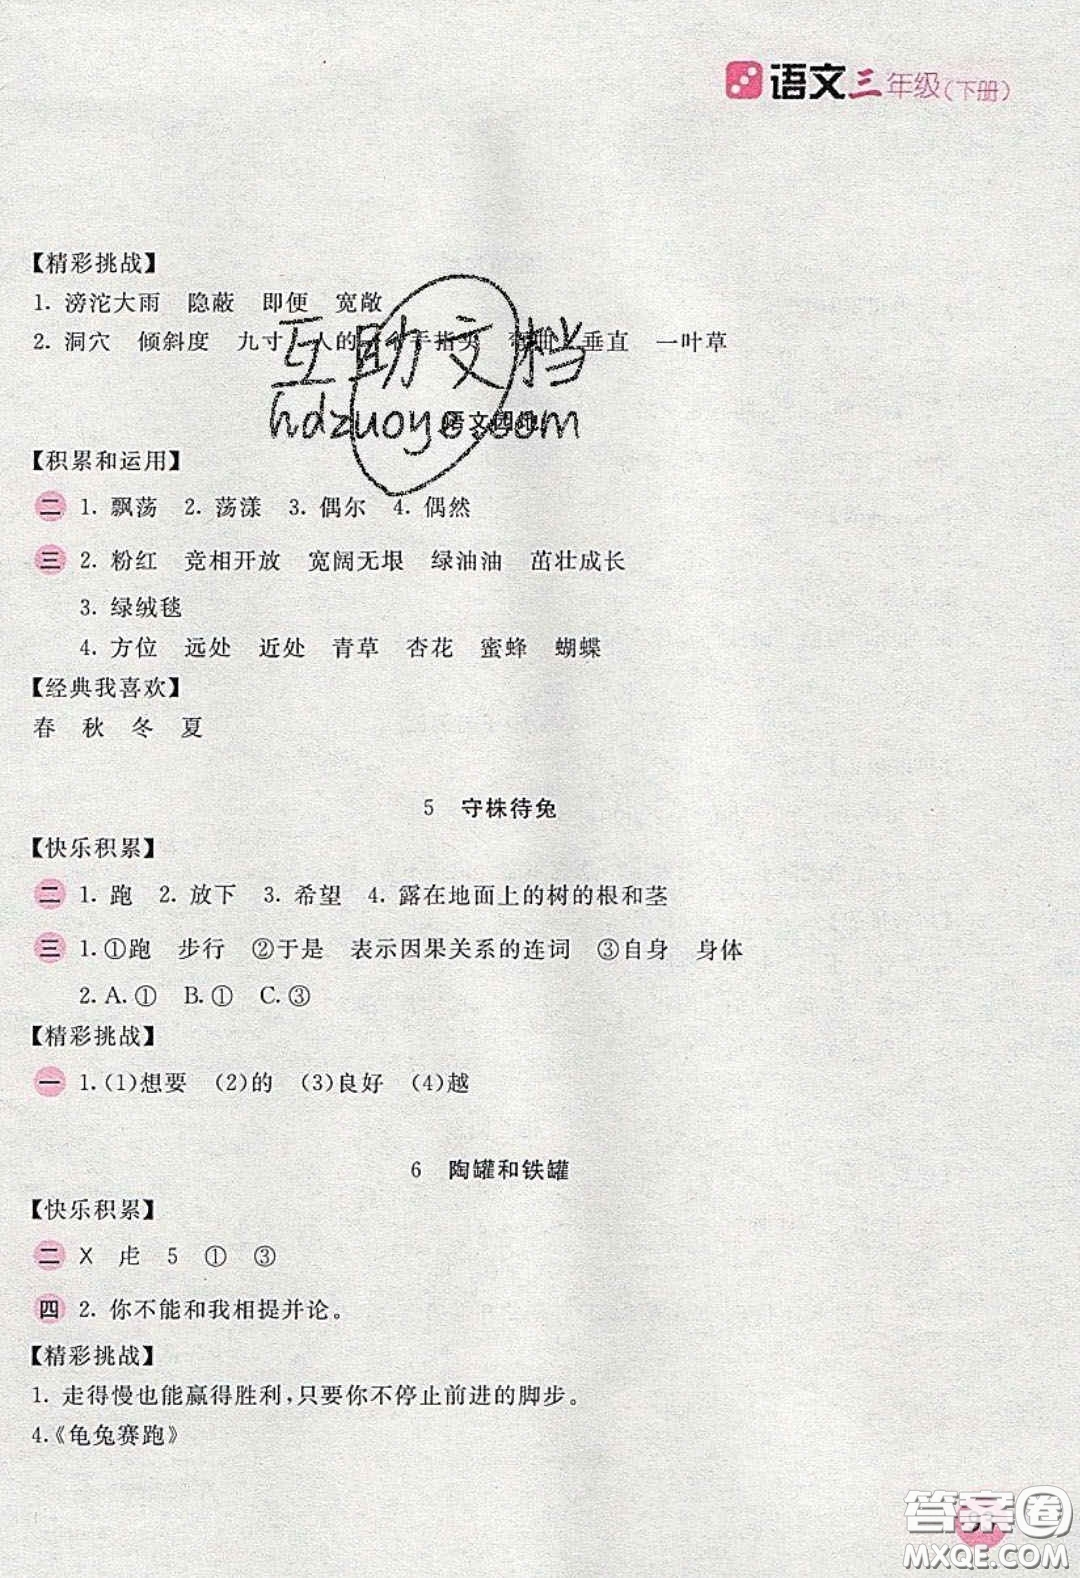 语文三年级(下册)
【精彩挑战】
1. 滂沱大雨 隐蔽 即便 宽敞
2. 洞穴 倾斜度 九寸 人的 手指尖 垂直 一叶草
互助文档
hdzuoye.com
语文园地
【积累和运用】
二 1. 飘荡 2. 荡漾 3. 偶尔 4. 偶然
三 2. 粉红 竞相开放 宽阔无垠 绿油油 茁壮成长
3. 绿绒毯
4. 方位 远处 近处 青草 杏花 蜜蜂 蝴蝶
【经典我喜欢】
春 秋 冬 夏
5 守株待兔
【快乐积累】
二 1. 跑 2. 放下 3. 希望 4. 露在地面上的树的根和茎
三 1.①跑 步行 ②于是 表示因果关系的连词 ③自身 身体
2. A.① B.① C.③
【精彩挑战】
一 1.(1)想要 (2)的 (3)良好 (4)越
6 陶罐和铁罐
【快乐积累】
二 X 虍 5 ① ③
四 2. 你不能和我相提并论。
【精彩挑战】
1. 走得慢也能赢得胜利,只要你不停止前进的脚步。
4.《龟兔赛跑》
答案圈
MXQE.COM